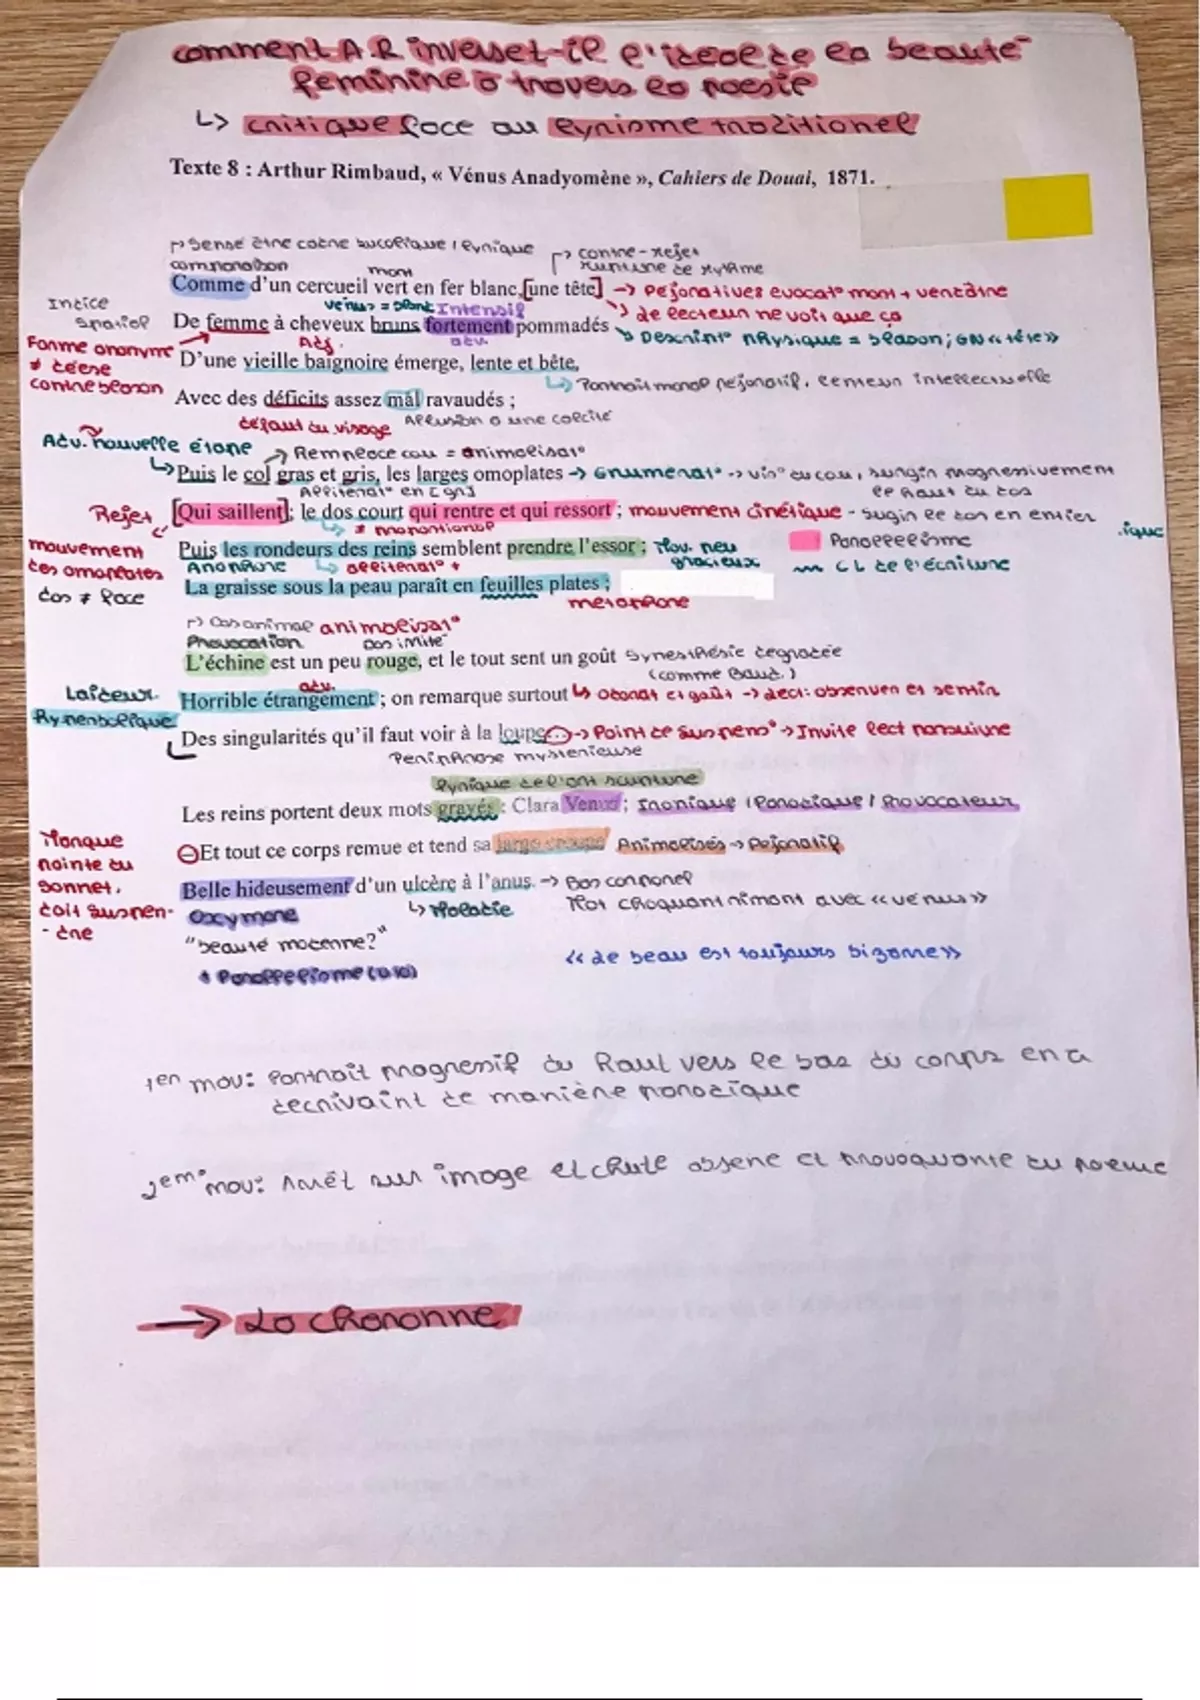 comment A.R inverset-il l'idéal de la beauté
féminine à travers la poésie
↳ critique face au lyrisme traditionel
Texte 8 : Arthur Rimbaud, « Vénus Anadyomène », Cahiers de Douai, 1871.
↱ Sensé être cadre bucolique / lyrique
↱ contre-rejet
comparaison
mort
rupture de rythme
Comme d'un cercueil vert en fer blanc, [une tête] → Péjoratives évocat° mort + verdâtre
Indice spatial
vénus = blanc Intensif
↘ Le lecteur ne voit que ça
De femme à cheveux bruns fortement pommadés
↘ Descript° physique = blason ; GN « tête »
Adj.
adv.
Forme anonyme
≠ déesse
contre blason
D'une vieille baignoire émerge, lente et bête,
↳ Portrait moral péjoratif, lenteur intellectuelle
Avec des déficits assez mal ravaudés ;
défaut du visage
Allusion à une calvité
Adv. nouvelle étape
↗ Remplace cou = animalisat°
↳ Puis le col gras et gris, les larges omoplates → énumérat° → vis° du cou, surgir progressivement
Allitérat° en [gr]
le haut du dos
Rejet
[Qui saillent] ; le dos court qui rentre et qui ressort ; mouvement cinétique - surgir le dos en entier
≠ proportionel
.ique
mouvement
des omoplates
dos ≠ face
Puis les rondeurs des reins semblent prendre l'essor ; Mov. peu gracieux
Parallélisme
Anaphore
↳ allitérat° +
CL de l'écriture
La graisse sous la peau paraît en feuilles plates ;
métaphore
↱ Cas animal animalisat°
Provocation
pas imité
L'échine est un peu rouge, et le tout sent un goût Synesthésie dégradée
(comme Baud.)
Laideur
Hyperbolique
adv.
Horrible étrangement ; on remarque surtout ↳ odorat et goût → lect : observer et sentir
Des singularités qu'il faut voir à la loupe... → Point de suspens° → Invite lect poursuivre
Périphrase mystérieuse
lyrique de l'art sculpture
Les reins portent deux mots gravés : Clara Venus ; Ironique / Parodique / Provocateur
Manque
pointe du
sonnet,
doit suspen-
-dre
⊖ Et tout ce corps remue et tend sa large croupe Animalisés → Péjoratif
Belle hideusement d'un ulcère à l'anus. → Bas corporel
Oxymore
↳ Maladie
Mot choquant rimant avec « vénus »
"beauté moderne ?"
+ Parallélisme (v.10)
« Le beau est toujours bizarre »
1er mov : Portrait progressif du haut vers le bas du corps en la
décrivaint de manière parodique
2em° mov : Arrêt sur image et chute obsène et provoquante du poème
→ La charogne